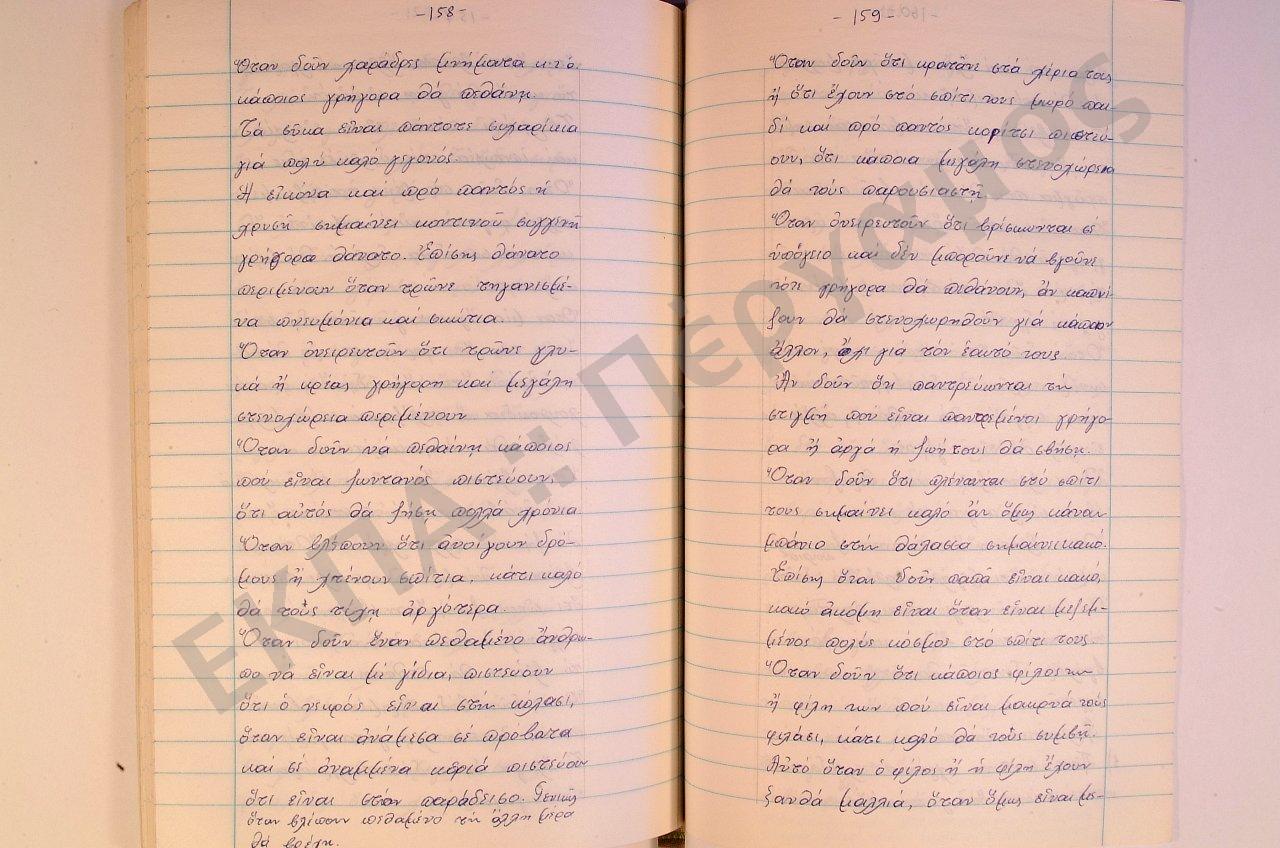 -158-
Ὅταν δοῦν χαράδρες μνήματα κ.τ.ὅ.
κάποιος γρήγορα θά πεθάνη
Τά σῦκα εἶναι πάντοτε συχαρίκια
γιά πολύ καλό γεγονός.
Ἡ εἰκόνα καί πρό παντός ἡ
χρυσῆ σημαίνει κοντινοῦ συγγενῆ
γρήγορο θάνατο. Ἐπίσης θάνατο
περιμένουν ὅταν τρῶνε τηγανισμέ-
να πνευμόνια καί σκώτια.
Ὅταν ὀνειρευτοῦν ὅτι τρῶνε γλυ-
κά ἤ κρέας γρήγορη καί μεγάλη
στενοχώρεια περιμένουν
Ὅταν δοῦν νά πεθαίνη κάποιος
πού εἶναι ζωντανός πιστεύουν,
ὅτι αὐτός θά ζήση πολλά χρόνια
Ὅταν βλέπουν ὅτι ἀνοίγουν δρό-
μους ἤ χτένουν σπίτια, κάτι καλό
θά τούς τύχη ἀργότερα.
Ὅταν δοῦν ἕναν πεθαμένο ἄνθρω-
πο νά εἶναι μέ γίδια, πιστεύουν
ὅτι ὁ νεκρός εἶναι στήν κόλασι,
ὅταν εἶναι ἀνάμεσα σέ πρόβατα
καί σέ ἀναμμένα κεριά πιστεύουν
ὅτι εἶναι στόν παράδεισο. Γενικῶς
ὅταν βλέπουν πεθαμένο τήν ἄλλη μέρα
θά βρέξη.
-159-
Ὅταν δοῦν ὅτι κρατᾶνε στά χέρια τους
ἤ ὅτι ἔχουν στό σπίτι τους μωρό παι-
δί καί πρό παντός κορίτσι πιστεύ-
ουν, ὅτι κάποια μεγάλη στενοχώρεια
θά τούς παρουσιαστῆ
Ὅταν ὀνειρευτοῦν ὅτι βρίσκωνται σέ
ὑπόγειο καί δέν μποροῦνε νά βγοῦνε
τότε γρήγορα θά πεθάνουν, ἄν καπνί-
ζουν θά στενοχωρηθοῦν γιά κάποιον
ἄλλον, ὄχι γιά τόν ἑαυτό τους
Ἄν δοῦν ὅτι παντρεύωνται τή
στιγμή πού εἶναι παντρεμένοι γρήγο-
ρα ἤ ἀργά ἡ ζωή τους θά σβήση.
Ὅταν δοῦν ὅτι πλένωνται στό σπίτι
τους σημαίνει καλό ἄν ὅμως κάνουν
μπάνιο στήν θάλασσα σημαίνει κακό.
Ἐπίσης ὅταν δοῦν παπᾶ εἶναι κακό,
κακό ἀκόμη εἶναι ὅταν εἶναι μαζεμ-
μένος πολύς κόσμος στό σπίτι τους.
Ὅταν δοῦν ὅτι κάποιος φίλος των
ἤ φίλη των πού εἶναι μακρυά τούς
φιλάει, κάτι καλό θά τούς συμβῆ.
Αὐτό ὅταν ὁ φίλος ἤ ἡ φίλη ἔχουν
ξανθά μαλλιά, ὅταν ὅμως εἶναι με-
ΕΚΠΑ :: Πέργαμος